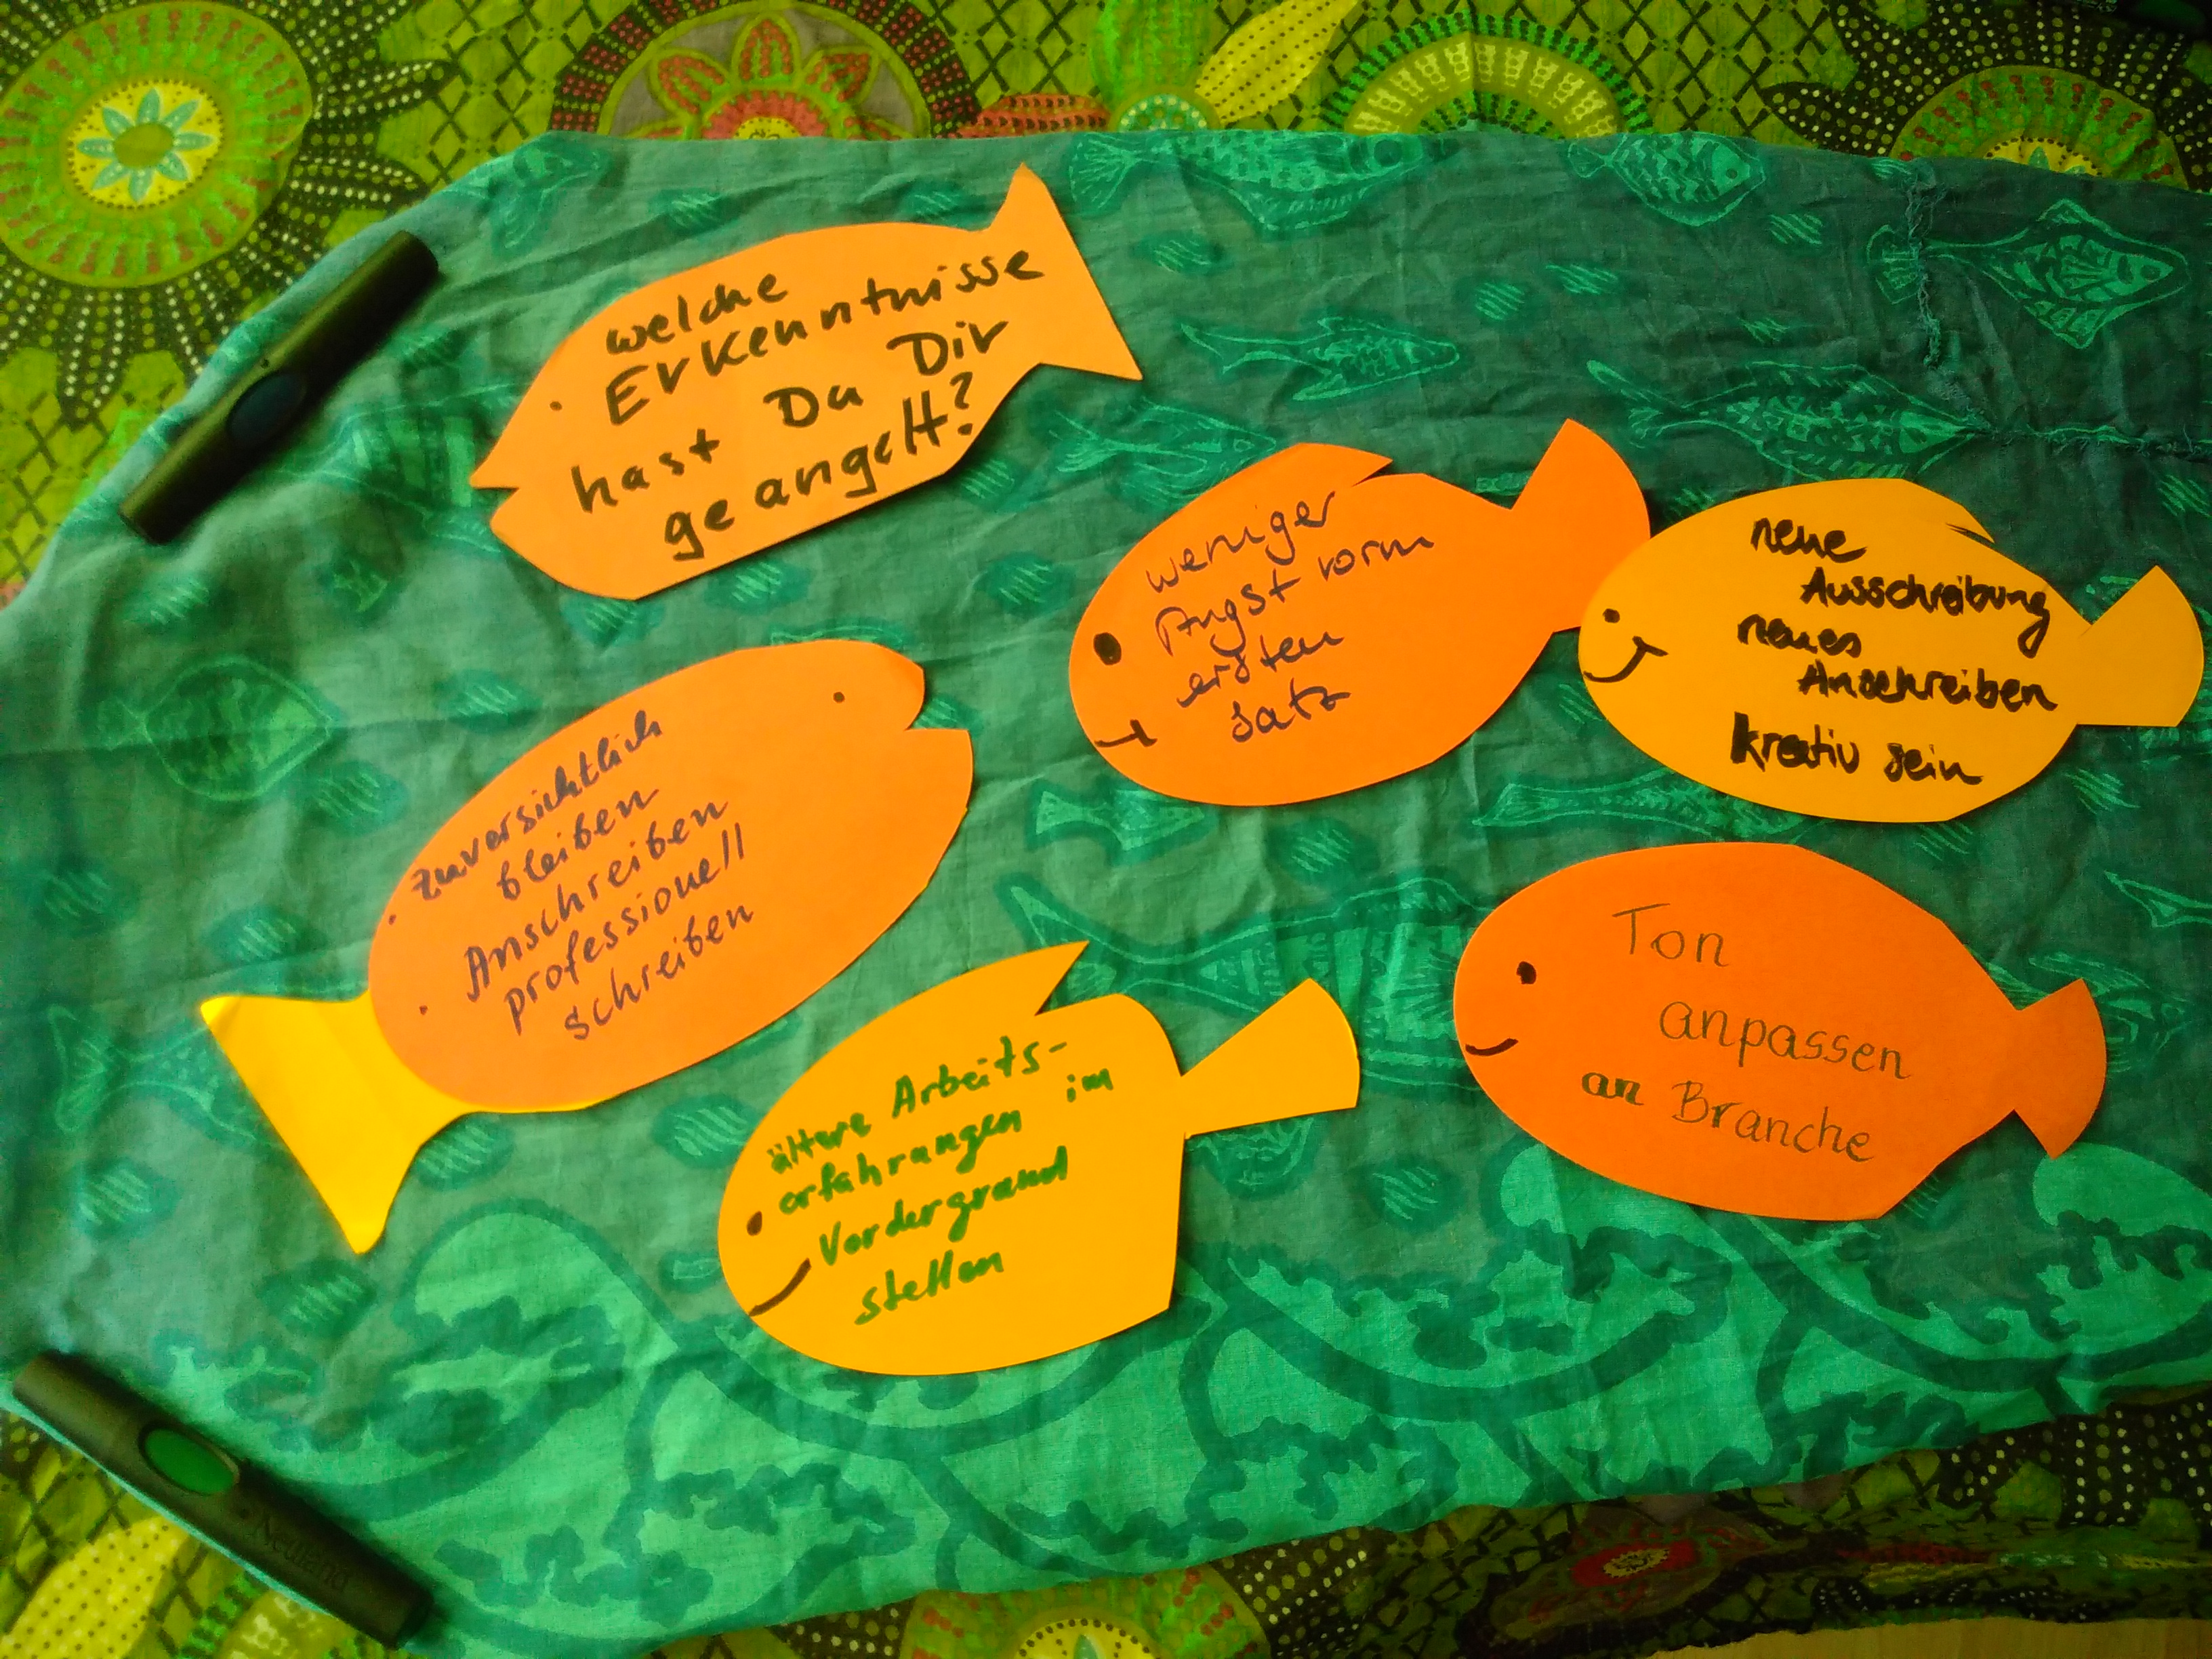 welche
Erkenntnisse
hast Du Dir
geangelt?
weniger
Angst vorm
ersten
Satz
neue
Ausschreibung
neues
Anschreiben
kreativ sein
• zuversichtlich
bleiben
• Anschreiben
professionell
schreiben
ältere Arbeits-
erfahrungen im
Vordergrund
stellen
Ton
anpassen
an Branche
Neuland